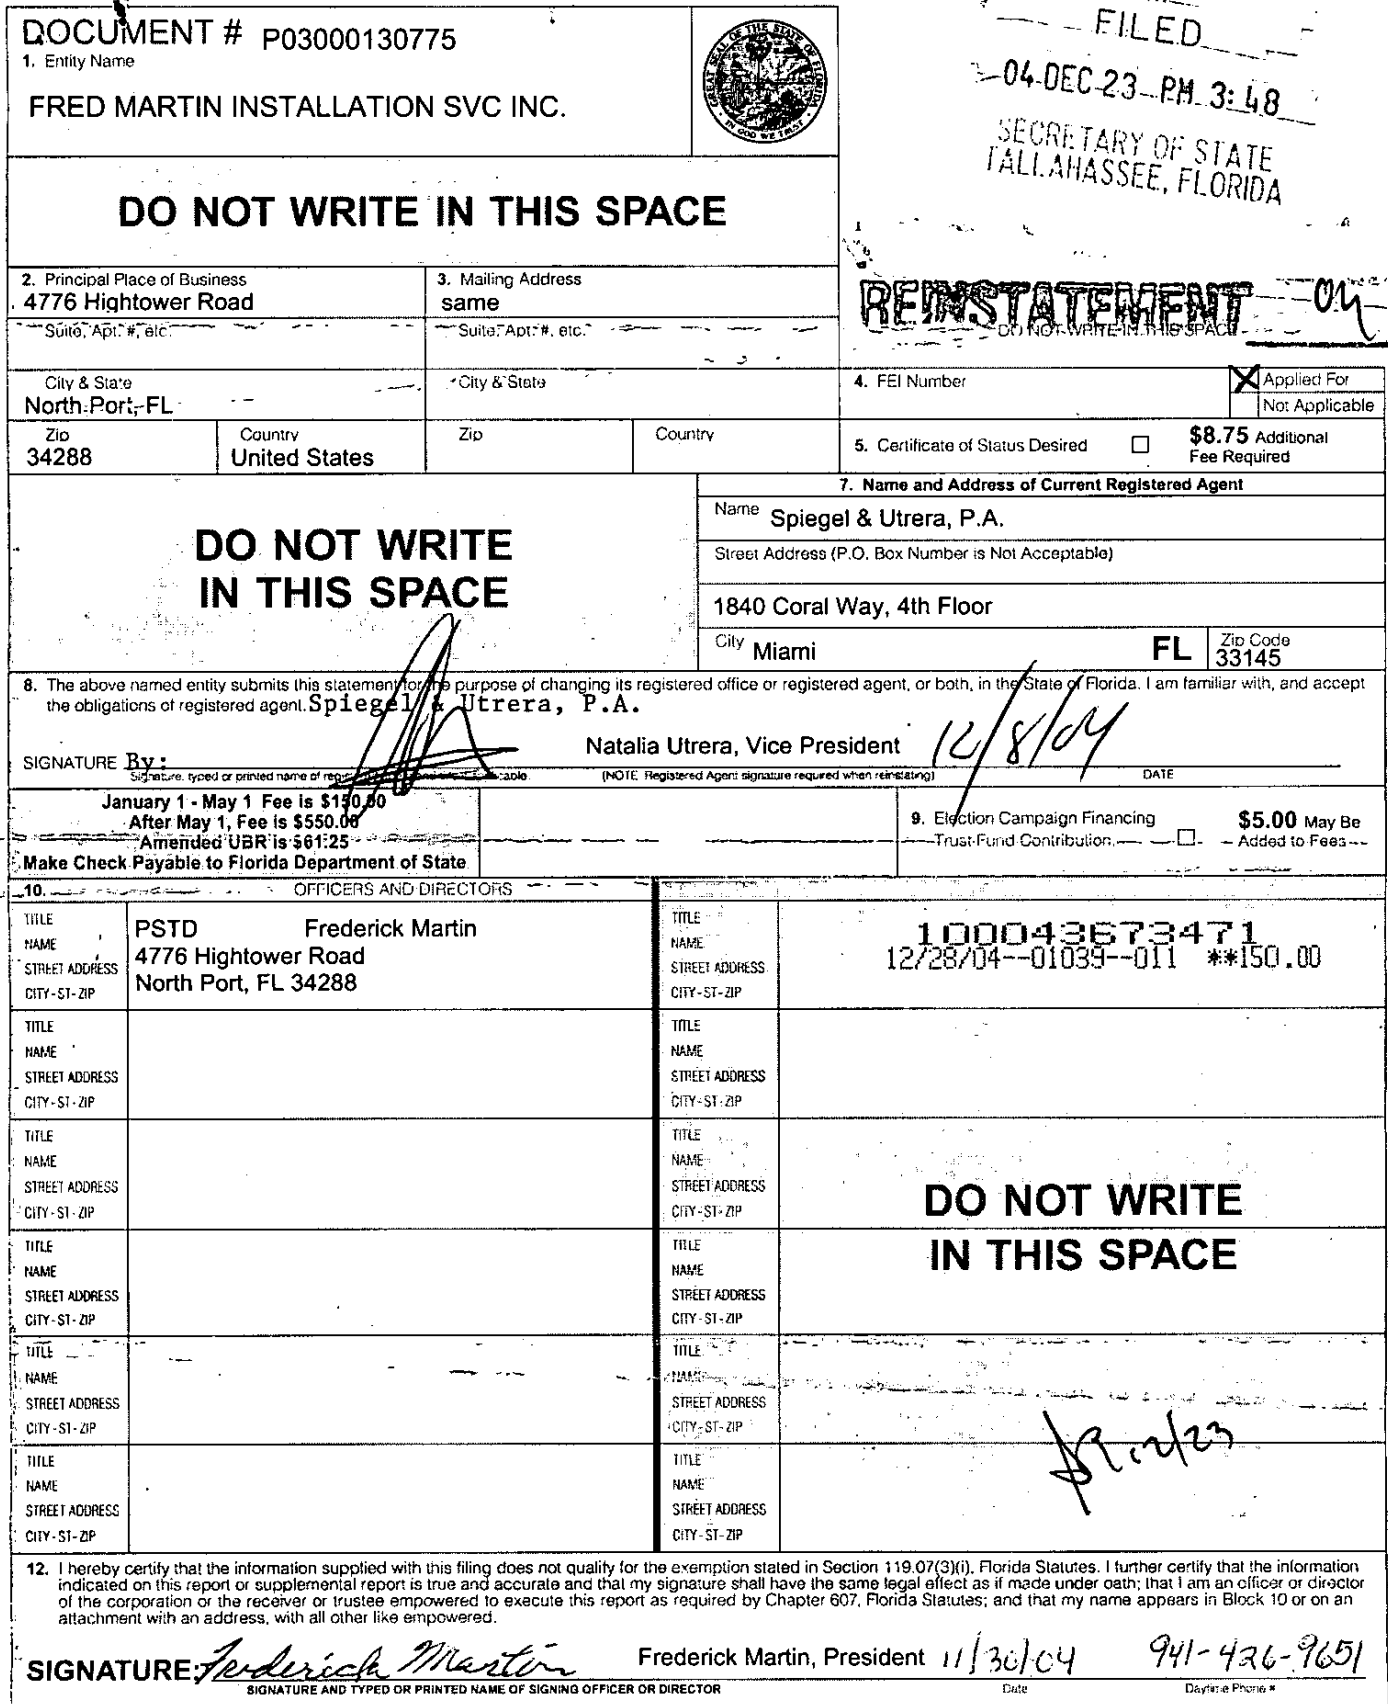 DOCUMENT # P03000130775
1. Entity Name
FRED MARTIN INSTALLATION SVC INC.
GREAT SEAL OF THE STATE OF FLORIDA
IN GOD WE TRUST
FILED
04 DEC 23 PM 3:48
SECRETARY OF STATE
TALLAHASSEE, FLORIDA
DO NOT WRITE IN THIS SPACE
REINSTATEMENT 04
DO NOT WRITE IN THIS SPACE
2. Principal Place of Business
4776 Hightower Road
3. Mailing Address
same
Suite, Apt. #, etc.
Suite, Apt. #, etc.
City & State
North Port, FL
City & State
4. FEI Number
X Applied For
Not Applicable
Zip
34288
Country
United States
Zip
Country
5. Certificate of Status Desired
$8.75 Additional
Fee Required
DO NOT WRITE
IN THIS SPACE
7. Name and Address of Current Registered Agent
Name Spiegel & Utrera, P.A.
Street Address (P.O. Box Number is Not Acceptable)
1840 Coral Way, 4th Floor
City Miami FL Zip Code
33145
8. The above named entity submits this statement for the purpose of changing its registered office or registered agent, or both, in the State of Florida. I am familiar with, and accept
the obligations of registered agent. Spiegel & Utrera, P.A.
SIGNATURE By: Natalia Utrera, Vice President 12/8/04
Signature, typed or printed name of (NOTE Registered Agent signature required when reinstating) DATE
January 1 - May 1 Fee is $150.00
After May 1, Fee is $550.00
Amended UBR is $61.25
Make Check Payable to Florida Department of State
9. Election Campaign Financing
Trust Fund Contribution.
$5.00 May Be
Added to Fees
10. OFFICERS AND DIRECTORS
TITLE
NAME
STREET ADDRESS
CITY-ST-ZIP
PSTD Frederick Martin
4776 Hightower Road
North Port, FL 34288
TITLE
NAME
STREET ADDRESS
CITY-ST-ZIP
100043673471
12/28/04--01039--011 **150.00
TITLE
NAME
STREET ADDRESS
CITY-ST-ZIP
TITLE
NAME
STREET ADDRESS
CITY-ST-ZIP
TITLE
NAME
STREET ADDRESS
CITY-ST-ZIP
TITLE
NAME
STREET ADDRESS
CITY-ST-ZIP
DO NOT WRITE
IN THIS SPACE
TITLE
NAME
STREET ADDRESS
CITY-ST-ZIP
TITLE
NAME
STREET ADDRESS
CITY-ST-ZIP
TITLE
NAME
STREET ADDRESS
CITY-ST-ZIP
TITLE
NAME
STREET ADDRESS
CITY-ST-ZIP
12/23
TITLE
NAME
STREET ADDRESS
CITY-ST-ZIP
TITLE
NAME
STREET ADDRESS
CITY-ST-ZIP
12. I hereby certify that the information supplied with this filing does not qualify for the exemption stated in Section 119.07(3)(i), Florida Statutes. I further certify that the information
indicated on this report or supplemental report is true and accurate and that my signature shall have the same legal effect as if made under oath; that I am an officer or director
of the corporation or the receiver or trustee empowered to execute this report as required by Chapter 607, Florida Statutes; and that my name appears in Block 10 or on an
attachment with an address, with all other like empowered.
SIGNATURE: Frederick Martin Frederick Martin, President 11/30/04 941-426-9651
SIGNATURE AND TYPED OR PRINTED NAME OF SIGNING OFFICER OR DIRECTOR Date Daytime Phone #